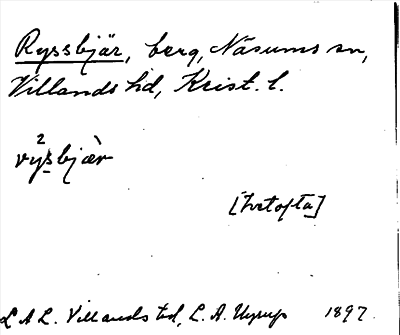 Ryssbjär, berg, Näsums sn,
Villands hd, Krist. l.
2
rysbjär
[Ivetofta]
L A L. Villands hd, L. A. 1897.